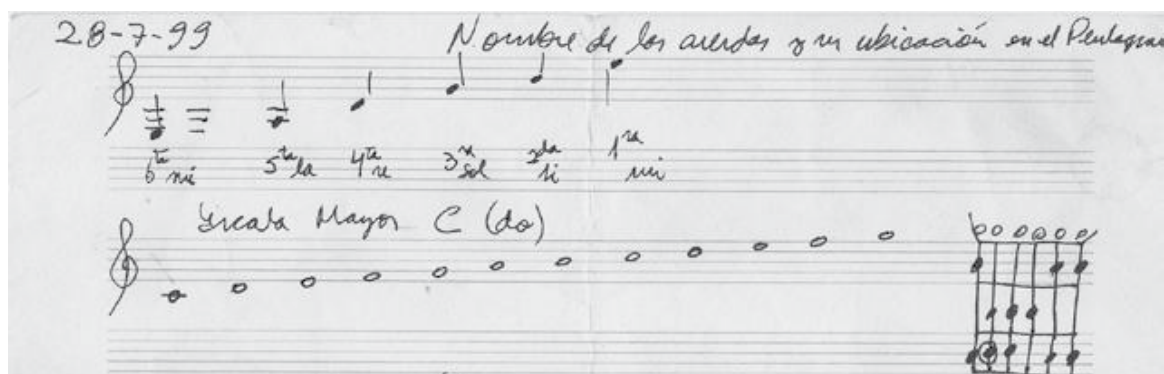 28-7-99 Nombre de las cuerdas y su ubicación en el Pentagram
6ta mi 5ta la 4ta re 3ra sol 2da si 1ra mi
Escala Mayor C (do)